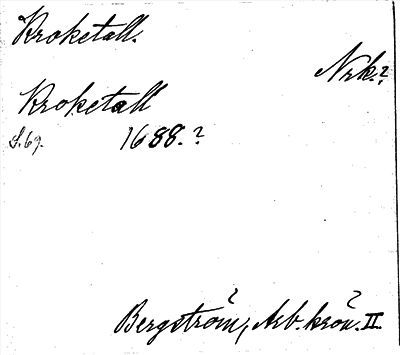 Kroketall.
Nrk.?
Kroketall
S. 69. 1688.?
Bergström, Arb. krön. II.